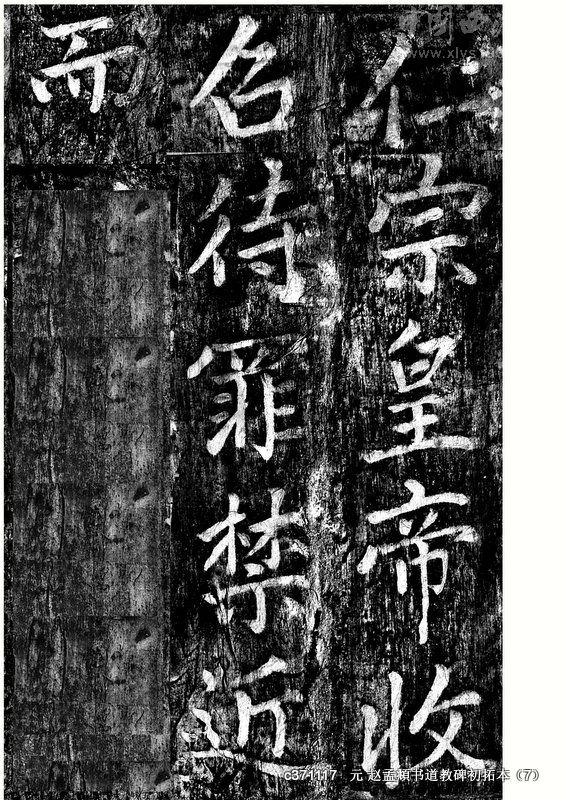 仁宗皇帝收
召待罪禁近
而
c371117 元 赵孟頫书道教碑初拓本（7）